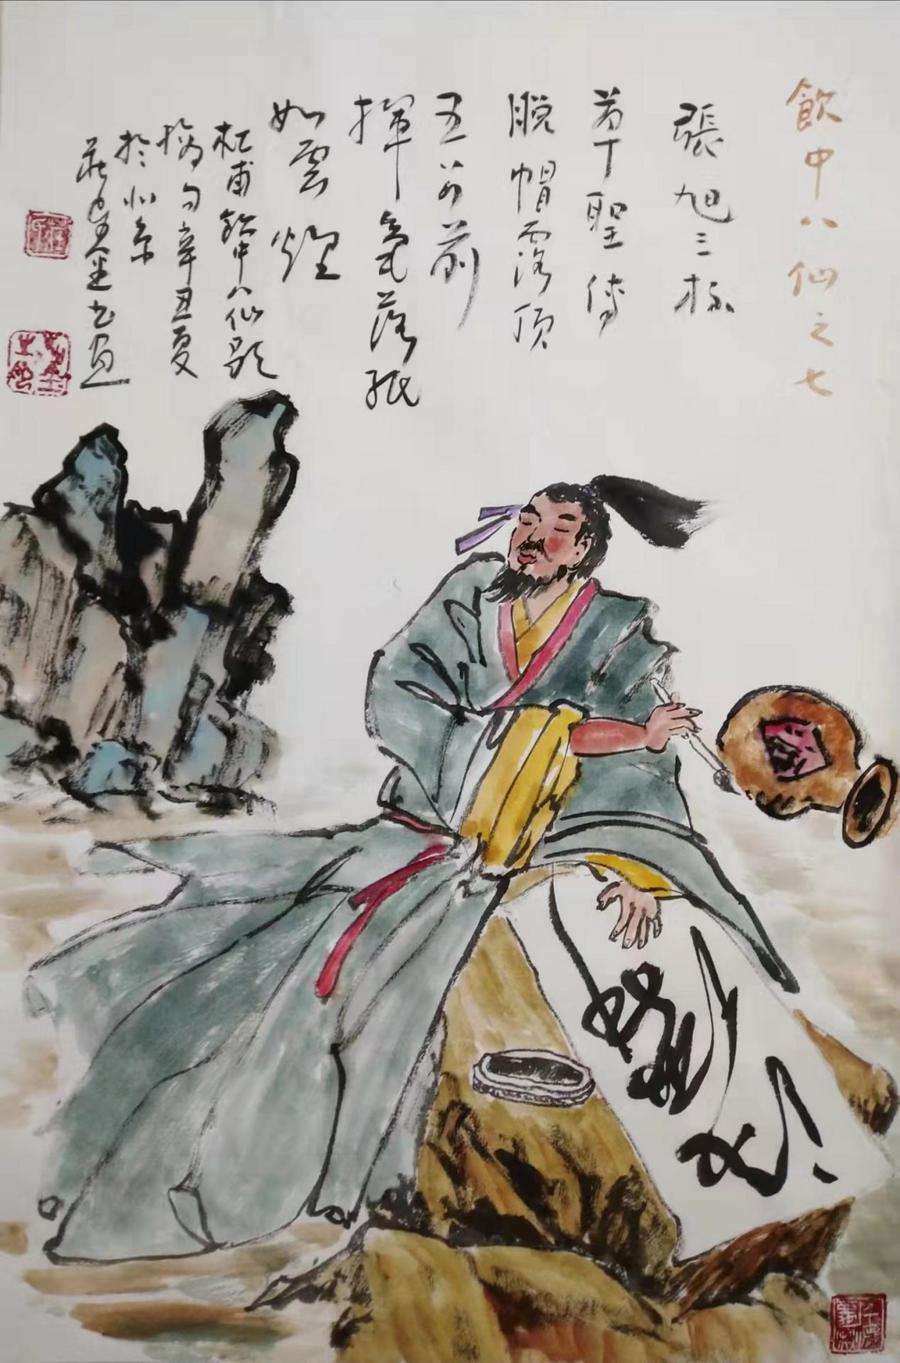 飲中八仙之七
張旭三杯
草聖傳
脱帽露頂
王公前
揮毫落紙
如雲煙
杜甫飲中八仙歌
摘句辛丑夏
於北京
書画